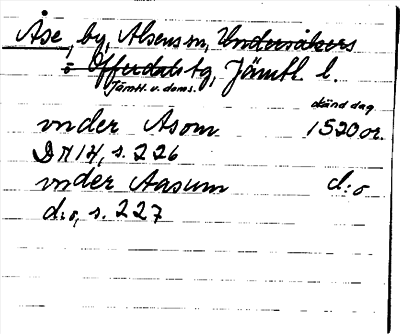 Åse, by, Alsens sn, Undersåkers
o Offerdals tg, Jämtl. l.
Jämtl. v. doms.
odaterad dag
vnder Asom 1520 or.
DN 14, s. 226
vnder Aasum d:o
d:o, s. 227